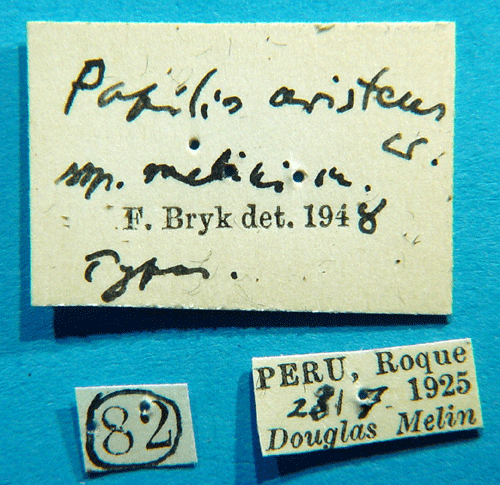 Papilio aristeus
cr.
ssp. melini m.
F. Bryk det. 1948
Typus.
82
PERU, Roque
2317 1925
Douglas Melin